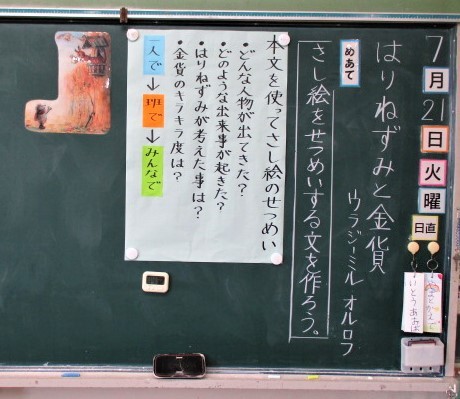 7月21日火曜
日直
はりねずみと金貨
ウラジーミル オルロフ
めあて
さし絵をせつめいする文を作ろう。
本文を使ってさし絵のせつめい
・どんな人物が出てきた？
・どのような出来事が起きた？
・はりねずみが考えた事は？
・金貨のキラキラ度は？
一人で→班で→みんなで